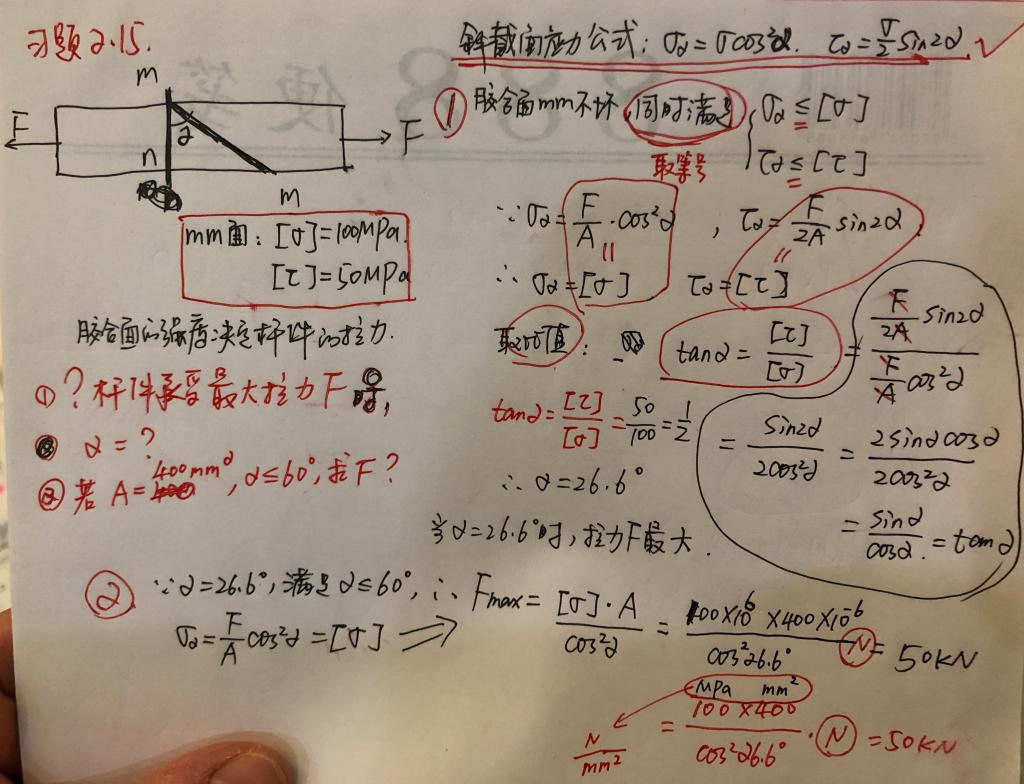 习题2.15.
斜截面应力公式: σα=σcos²α. τα=σ/2 sin2α √
m
F
α
n
m
F
mm面: [σ]=100MPa.
[τ]=50MPa
胶合面的强度决定杆件的拉力.
① ? 杆件承受最大拉力F时,
α=?
② 若 A=400mm², α≤60°, 求F?
① 胶合面mm不坏, 同时满足 { σα≤[σ]
τα≤[τ]
取等号
∵ σα=F/A·cos²α , τα=F/2A sin2α
∴ σα=[σ] τα=[τ]
取比值: tanα=[τ]/[σ] = (F/2A sin2α)/(F/A cos²α)
= sin2α/2cos²α = 2sinαcosα/2cos²α
= sinα/cosα = tanα
tanα=[τ]/[σ]=50/100=1/2
∴ α=26.6°
当α=26.6°时, 拉力F最大.
② ∵ α=26.6°, 满足α≤60°, ∴ Fmax=[σ]·A/cos²α = 100×10⁶×400×10⁻⁶/cos²26.6° N = 50KN
σα=F/A cos²α=[σ] ⇒
MPa mm²
N/mm² = 100×400/cos²26.6° · N =50KN